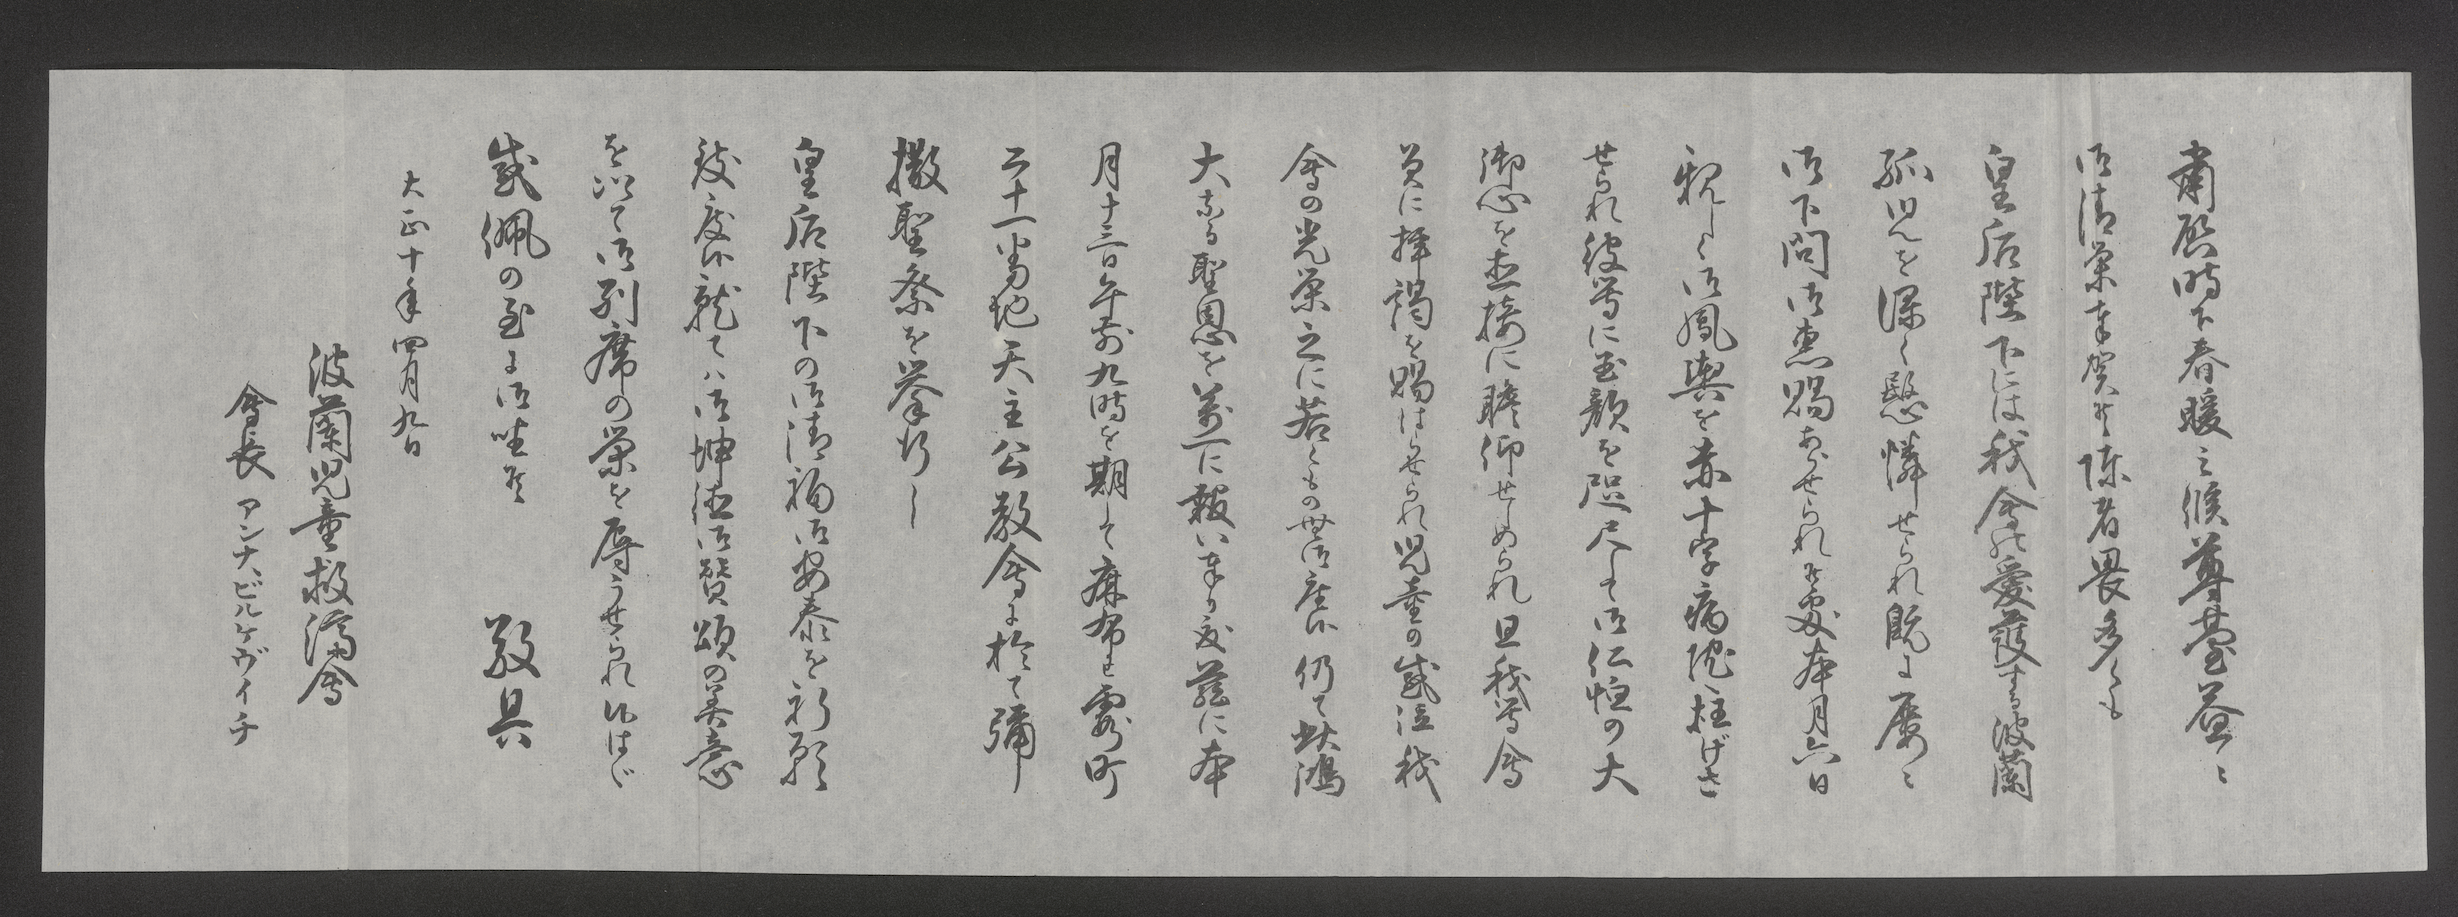 肅啓時下春暖之候尊臺益々
御清栄奉賀候陳者畏多くも
皇后陛下には我会の愛護する波蘭
孤児を深く愍憐せられ既に屡々
御下問御恵賜あらせられ候処本月六日
親しく御鳳輿を赤十字病院に枉げさ
せられ彼等に玉顔を咫尺して御仁恤の大
御心を直接に瞻仰せしめられ且我等会
員に拝謁を賜はらせられ児童の感泣我
会の光栄之に若くもの無御座候仍て此鴻
大なる聖恩を万一に報い奉り度茲に本
月十三日午前九時を期して麻布区霞町
二十一番地天主公教会に於て彌
撒聖祭を挙行し
皇后陛下の御清福御安泰を祈願
致度候就ては御坤徳御賛頌の美意
を以て御列席の栄を辱うせられ候はゞ
感佩の至に御坐候
敬具
大正十年四月九日
波蘭児童救済会
會長 アンナ、ビルケヴイチ